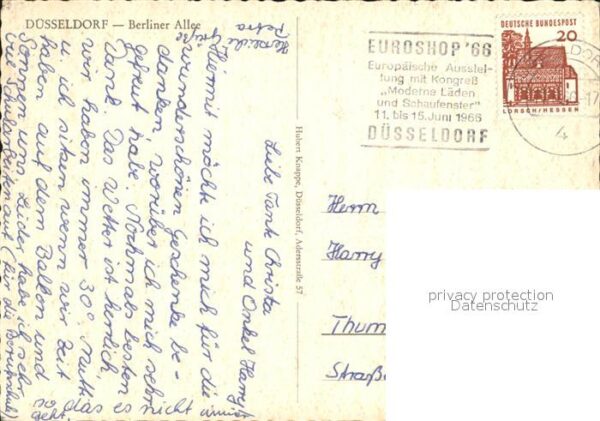 DÜSSELDORF — Berliner Allee
EUROSHOP '66
Europäische Ausstel-
lung mit Kongreß
„Moderne Läden
und Schaufenster"
11. bis 15. Juni 1966
DÜSSELDORF
DEUTSCHE BUNDESPOST
20
LORSCH/HESSEN
4
Hubert Knappe, Düsseldorf, Adersstraße 57
Liebe Tante Christa
und Onkel Harry!
Hiermit möchte ich mich für die
wunderschönen Geschenke be-
danken, worüber ich mich sehr
gefreut habe. Nochmals besten
Dank. Das Wetter ist herrlich,
wir haben immer 30°. Mutti
u. ich sitzen wenn wir Zeit
haben auf dem Balkon und
Sonnen uns. Leider habe ich sehr
viel Hausaufgaben auf (für die Berufsschule)
so das es nicht immer
geht.
Herzliche Grüße
Petra
Herrn
Harry
Thum
Straße
privacy protection
Datenschutz